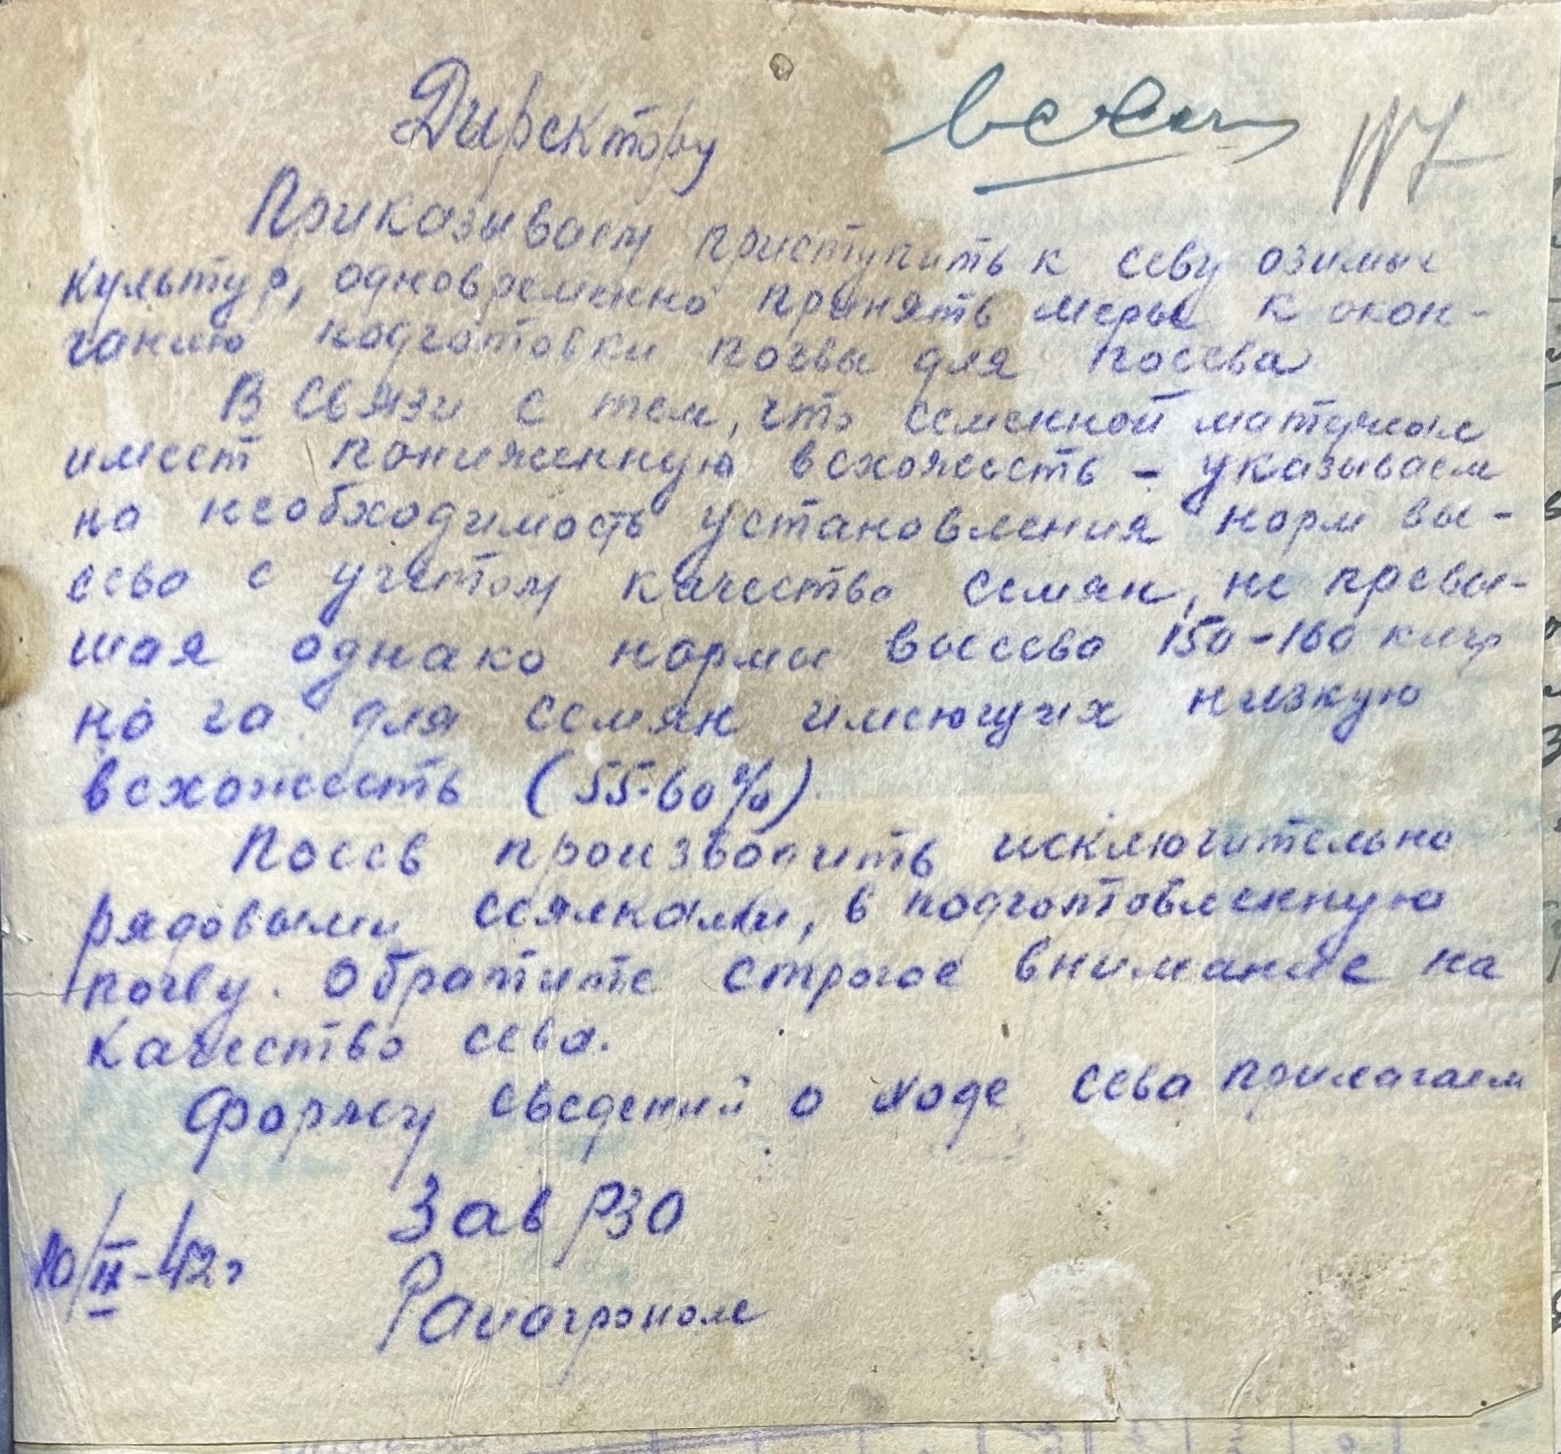 Директору всем
Приказываем приступить к севу озимых
культур, одновременно принять меры к окон-
чанию подготовки почвы для посева
В связи с тем, что семенной материал
имеет пониженную всхожесть - указываем
на необходимость установления норм вы-
сева с учетом качества семян, не превы-
шая однако нормы высева 150-160 клгр
на га для семян имеющих низкую
всхожесть (55-60%).
Посев производить исключительно
рядовыми сеялками, в подготовленную
почву. Обратите строгое внимание на
качество сева.
Форму сведений о ходе сева прилагаем
Зав РЗО
10/IX-42г
Райагроном